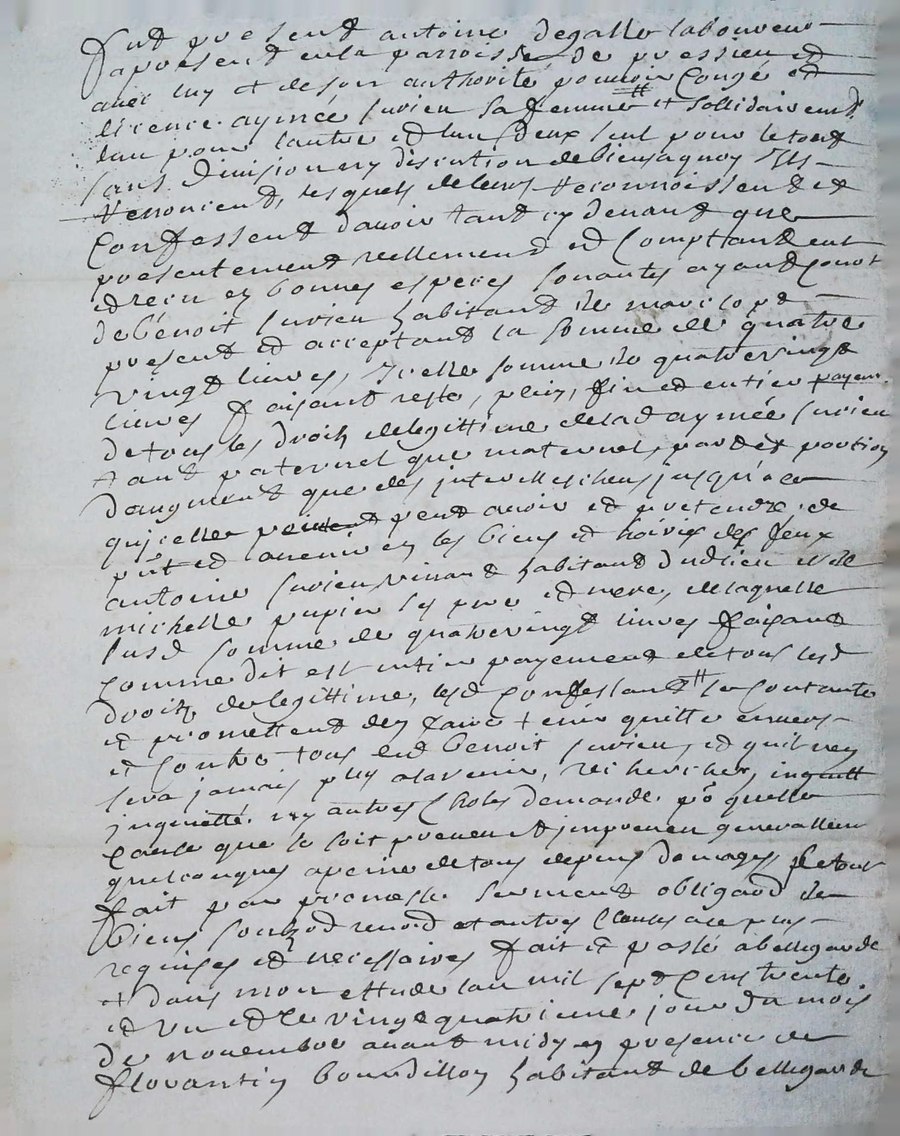 fut present antoine degalle laboureur
apresent en la parroisse de pressieu et
avec luy et de son authorité pouvoir congé et
licence aymée surieu sa femme et sollidairemt
lun pour lautre et lun deux seul pour le tout
sans division ny discution de biens aquoy Ils
renoncent, lesquels de leurs reconnoissent et
Confessent davoir tant cy devant que
presentement reellement et comptant eut
et receu en bonnes especes sonantes ayant cours
de benoit surieu habitant de marclopt
present et acceptant la somme de quatre
vingt livres, Icelle somme de quatrevingt
livres faisant reste, plein, fin et entier payem.
de tous les droits delegittime delad aymée surieu
tant paternel que maternel, part et portion
daugment que des interests escheus jusquà ce
quicelle peuvent peut avoir et pretendre, de
pnt et avenir en les biens et hoiries des feux
antoine surieu vivant habitant dudlieu et de
michelle papier ses pere et mere, de laquelle
susd somme de quatrevingt livres faisant
comme dit est entier payement de tous lesd
droits delegittime, lesd confessants se contante
et promettent den faire tenir quitte envers
et contre tous led benoit surieu, et quil ney
sera jamais plus alavenir, recherché, inquiett
inquietté ny autres choses demandé po quelle
cause que ce soit preveu et impreveu generallem
quelconques apeine de tous depens domages le tout
fait par promesse serment obligaod de
biens soubzod renod et autres clauses ace plus
requises et necessaires fait et passé abellegarde
et dans mon ettude lan mil sept cens trente
et un et le vingt quatrieme jour du mois
de novembre avant midy en presence de
florantin bourdillon habitant de bellegarde